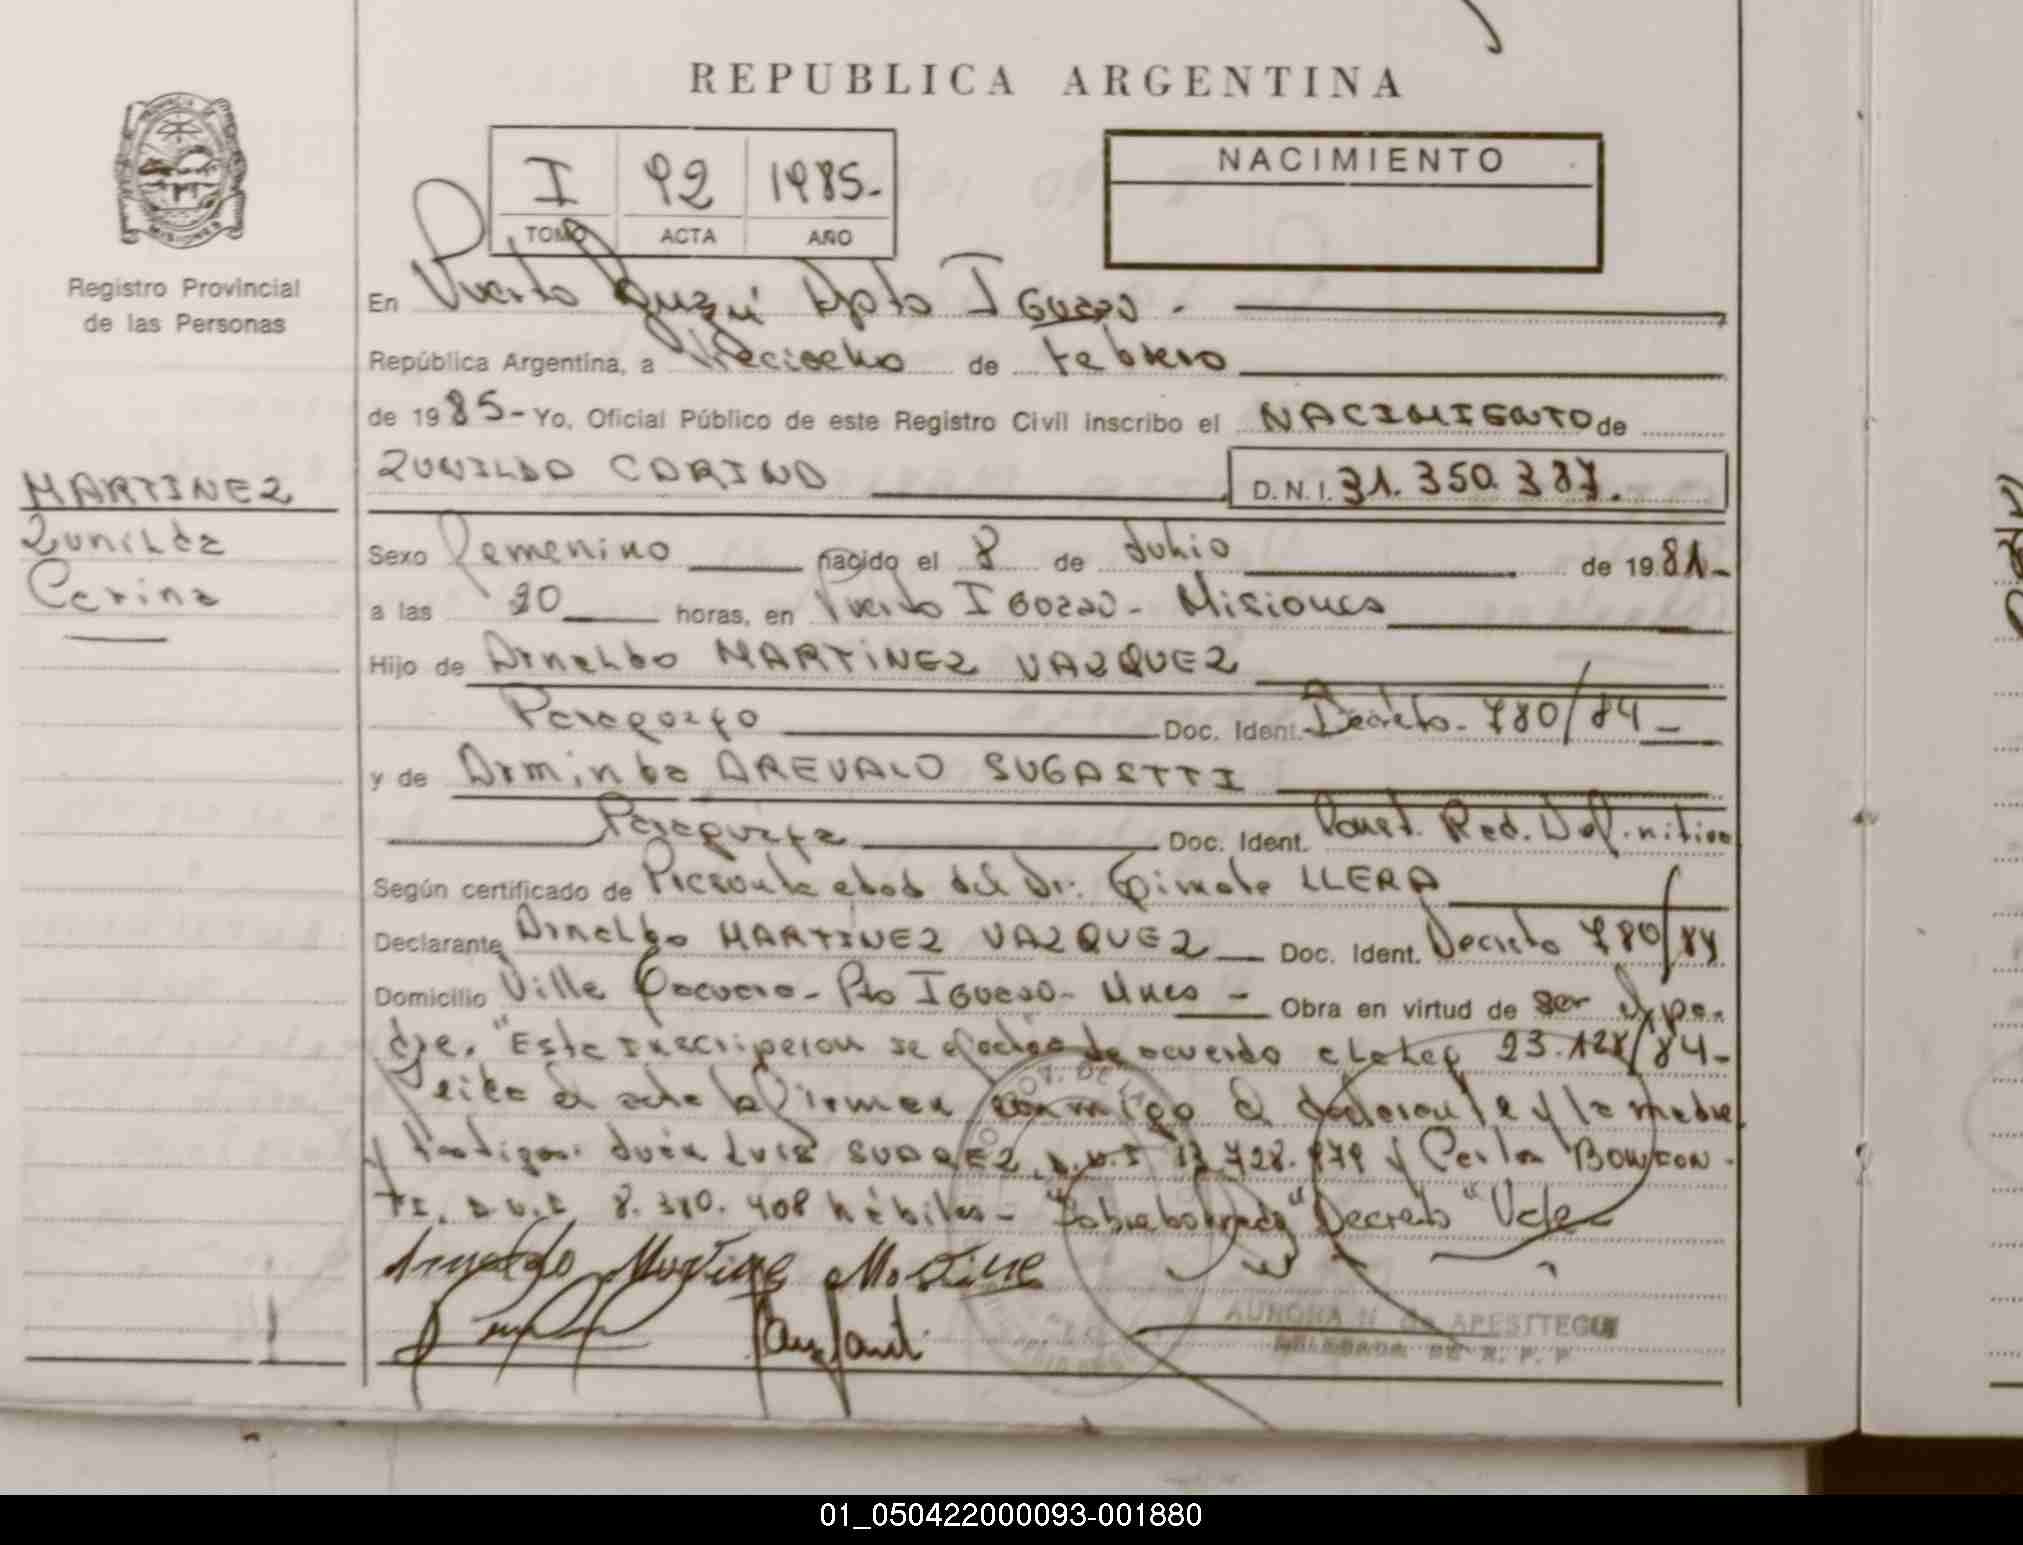 REPUBLICA ARGENTINA
PROVINCIA DE
MISIONES
Registro Provincial
de las Personas
I 92 1985-
TOMO ACTA AÑO
NACIMIENTO
En Puerto Iguazú Dpto Iguazú -
República Argentina, a Dieciocho de febrero
de 1985- Yo, Oficial Público de este Registro Civil inscribo el NACIMIENTO de
ZUNILDA CARINA D.N.I. 31.350.387.
MARTINEZ
Zunilda
Carina
Sexo femenino nacido el 8 de Julio de 1981-
a las 20 horas, en Puerto Iguazú - Misiones
Hijo de Arnaldo MARTINEZ VAZQUEZ
Paraguayo Doc. Ident. Decreto - 780/84-
y de Arminda AREVALO SUGASTTI
Paraguaya Doc. Ident. Const. Rad. Definitiva
Según certificado de Presunta edad del Dr. LLERA
Declarante Arnaldo MARTINEZ VAZQUEZ Doc. Ident. Decreto 780/84
Domicilio Villa - Pto Iguazú - Mnes - Obra en virtud de ser el pa-
dre. "Esta inscripcion se efectúa de acuerdo a la Ley 23.128/84-
el acta la firman conmigo el declarante y la madre
y testigos: Juan Luis SUAREZ, D.N.I. 728. y Carlos
D.N.I. 8.310.408 hábiles - "Sobreborrado" Decreto "Vale-
Arnaldo Martinez
AURORA N. de APESTTEGUI
DELEGADA DE R. P. P.
01_050422000093-001880